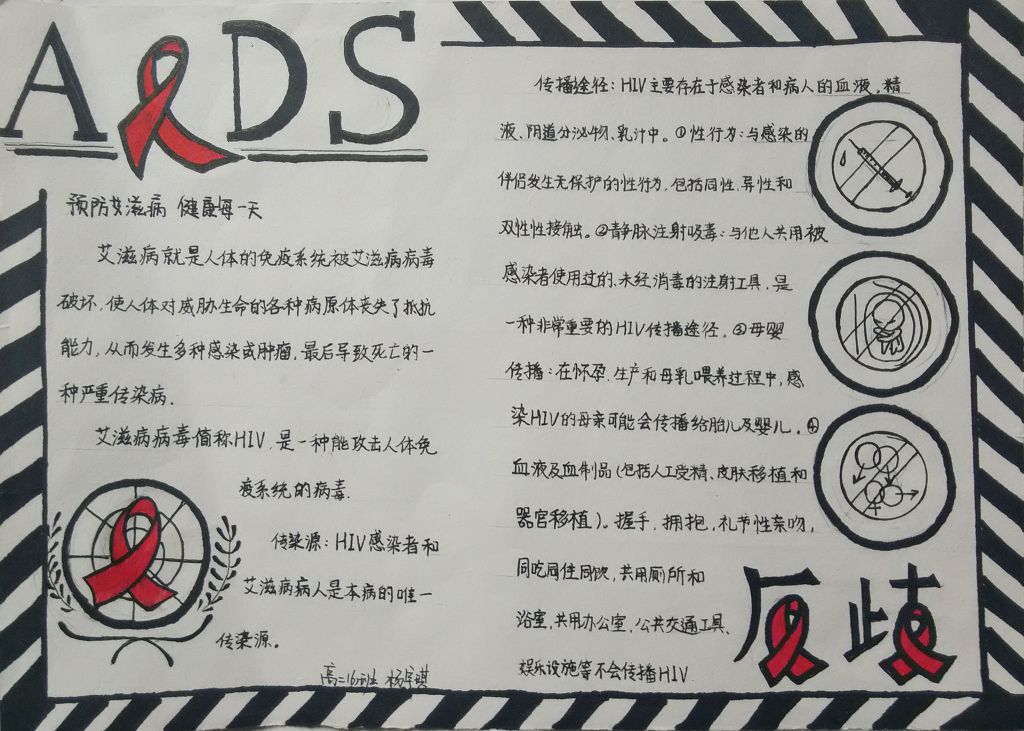 AIDS
预防艾滋病 健康每一天
艾滋病就是人体的免疫系统被艾滋病病毒
破坏,使人体对威胁生命的各种病原体丧失了抵抗
能力,从而发生多种感染或肿瘤,最后导致死亡的一
种严重传染病.
艾滋病病毒简称HIV,是一种能攻击人体免
疫系统的病毒.
传染源:HIV感染者和
艾滋病病人是本病的唯一
传染源。
高二16班 杨宇琪
传播途径:HIV主要存在于感染者和病人的血液,精
液、阴道分泌物、乳汁中。①性行为:与感染的
伴侣发生无保护的性行为,包括同性、异性和
双性性接触。②静脉注射吸毒:与他人共用被
感染者使用过的、未经消毒的注射工具,是
一种非常重要的HIV传播途径。③母婴
传播:在怀孕、生产和母乳喂养过程中,感
染HIV的母亲可能会传播给胎儿及婴儿。④
血液及血制品(包括人工受精、皮肤移植和
器官移植)。握手,拥抱,礼节性亲吻,
同吃同住同饮,共用厕所和
浴室,共用办公室、公共交通工具、
娱乐设施等不会传播HIV
反歧